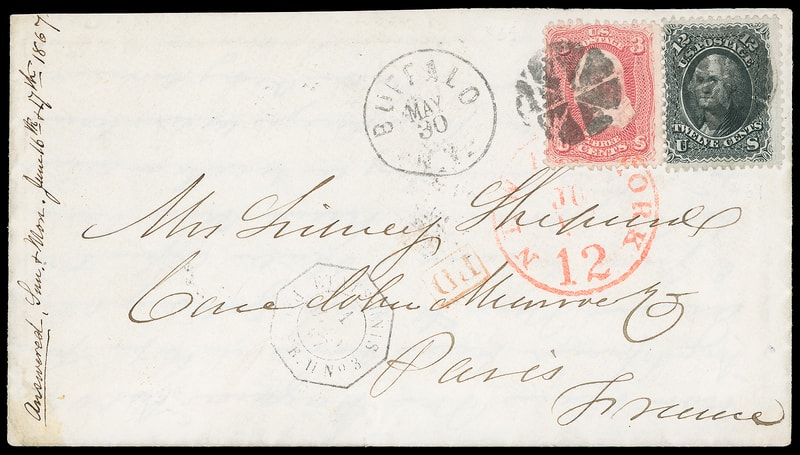 Answered, Sun. & Mon. June 16th & 17th 1867
BUFFALO
MAY
30
N.Y.
3 3
U.S.
POSTAGE
THREE
CENTS
U S
12 12
U.S. POSTAGE
TWELVE CENTS
U S
NEW YORK
12
Mrs Sidney Shepard
PD
Care John Munroe & Co
Paris
France